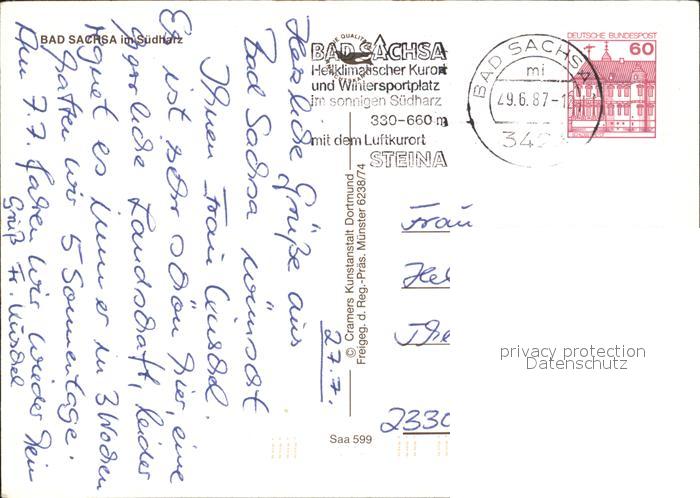 BAD SACHSA im Südharz
Herzliche Grüße aus
Bad Sachsa wünscht
Ihnen Frau
Es ist sehr schön hier, eine
herrliche Landschaft, leider
regnet es immer in 3 Wochen
hatten wir 5 Sonnentage.
Am 7.7. fahren wir wieder heim
Gruß Fr.
27.7.
BAD SACHSA
Heilklimatischer Kurort
und Wintersportplatz
im sonnigen Südharz
330-660 m
mit dem Luftkurort
STEINA
BAD SACHSA
mi
29.6.87-1
342
DEUTSCHE BUNDESPOST
60
© Cramers Kunstanstalt Dortmund
Freigeg. d. Reg.-Präs. Münster 6238/74
Saa 599
Frau
Hel
The
2330
privacy protection
Datenschutz